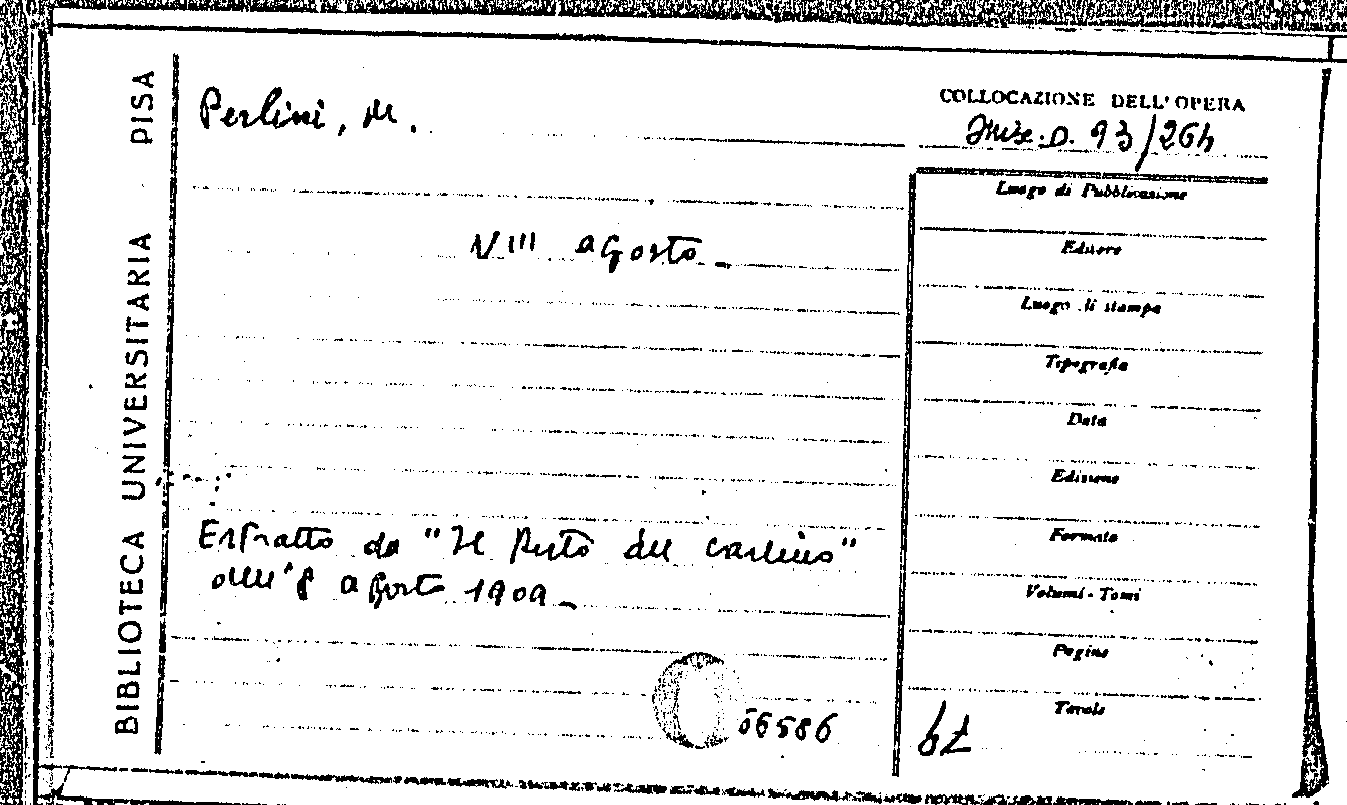 BIBLIOTECA UNIVERSITARIA · PISA
Perlini, M.
VIII agosto
Estratto da "Il Resto del Carlino"
dell'8 agosto 1909
56586
COLLOCAZIONE DELL'OPERA
Misc. D. 93/26
Luogo di Pubblicazione
Editore
Luogo di stampa
Tipografia
Data
Edizione
Formato
Volumi - Tomi
Pagine
Tavole